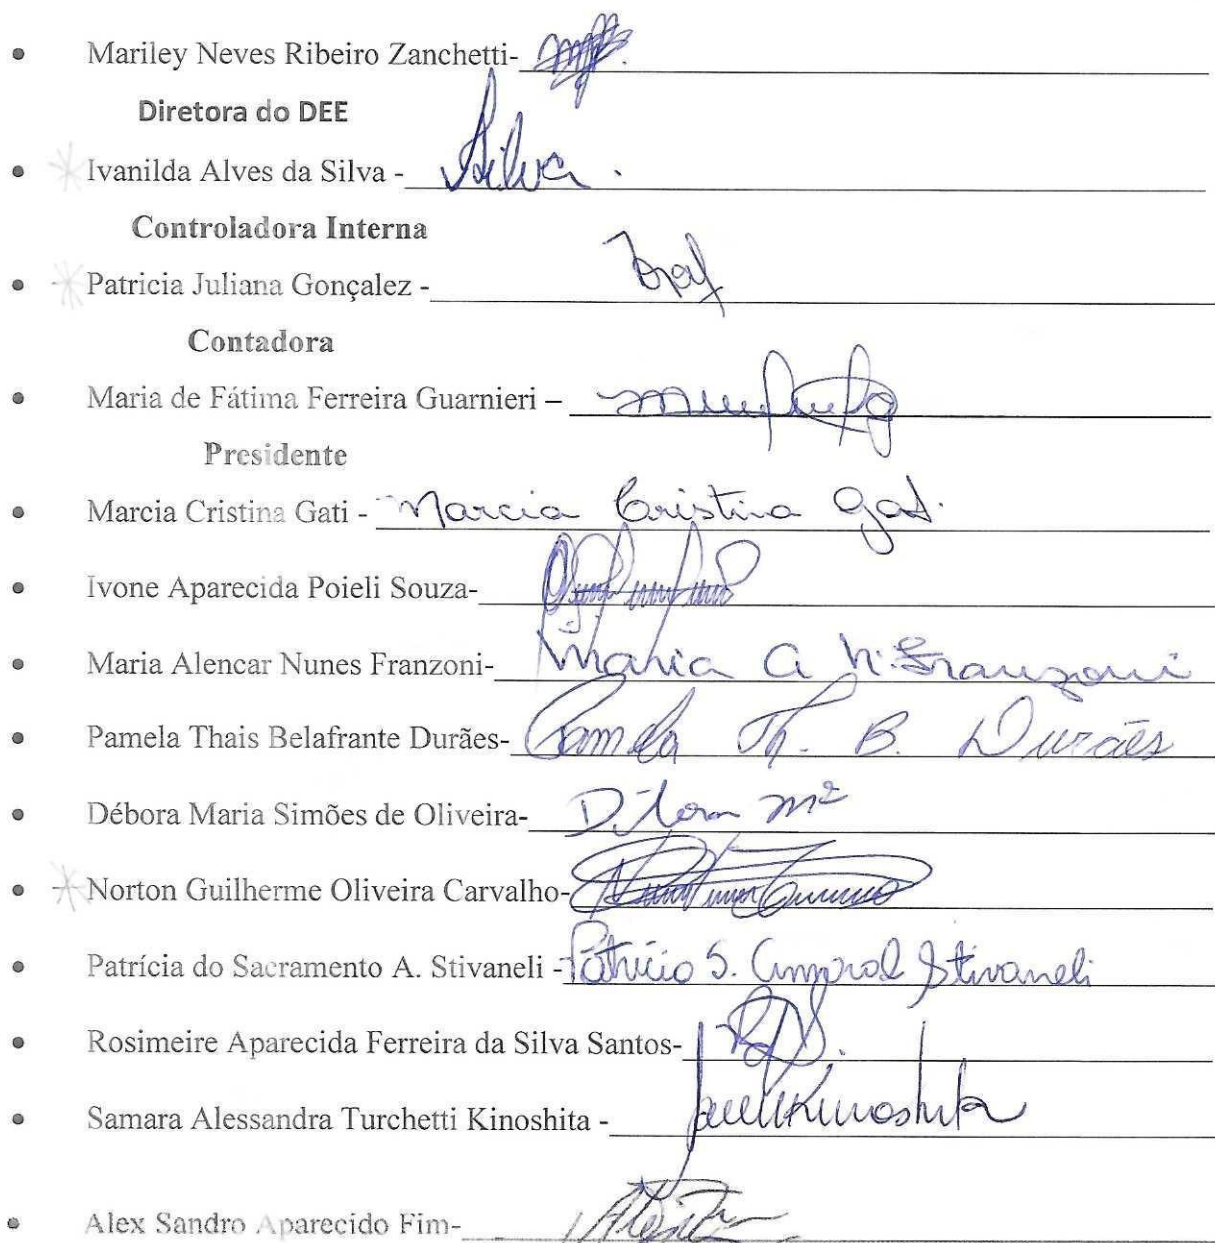 • Mariley Neves Ribeiro Zanchetti-
Diretora do DEE
• Ivanilda Alves da Silva - Silva.
Controladora Interna
• Patricia Juliana Gonçalez -
Contadora
• Maria de Fátima Ferreira Guarnieri –
Presidente
• Marcia Cristina Gati - Marcia Cristina Gati.
• Ivone Aparecida Poieli Souza-
• Maria Alencar Nunes Franzoni- Maria A N. Franzoni
• Pamela Thais Belafrante Durães- Pamela Th. B. Durães
• Débora Maria Simões de Oliveira- Débora Mª
• Norton Guilherme Oliveira Carvalho-
• Patrícia do Sacramento A. Stivaneli - Patrícia S. Amaral Stivaneli
• Rosimeire Aparecida Ferreira da Silva Santos-
• Samara Alessandra Turchetti Kinoshita - Kinoshita
• Alex Sandro Aparecido Fim-